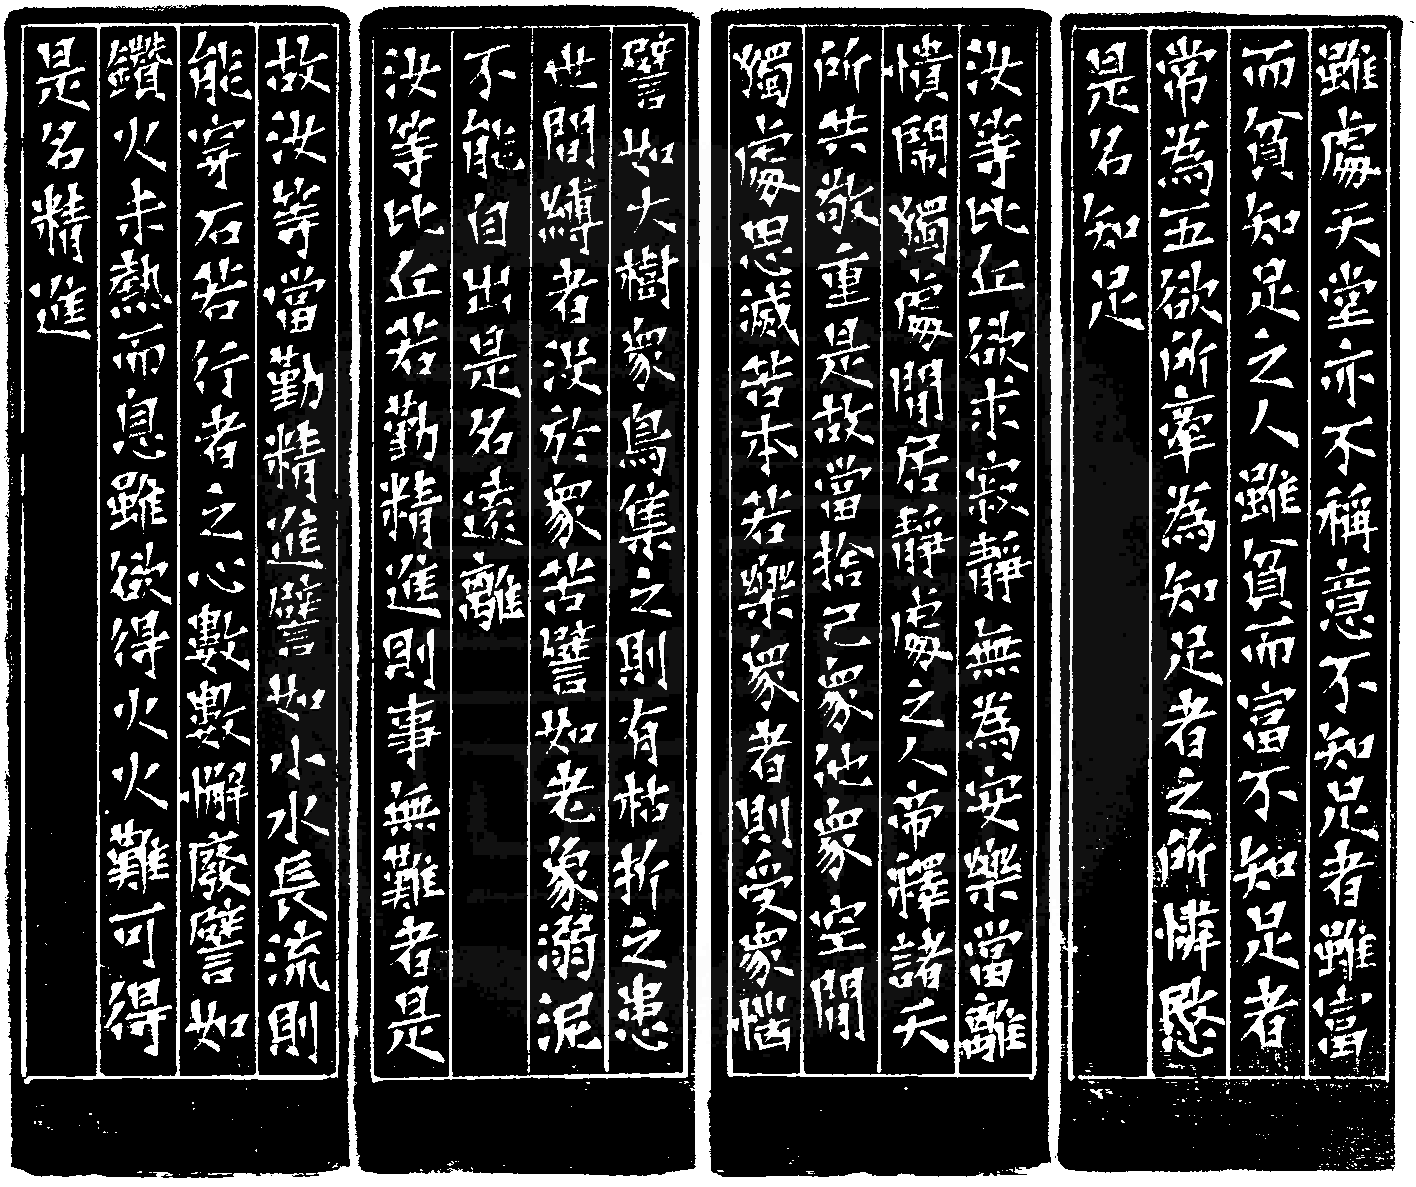 雖處天堂亦不稱意不知足者雖富
而貧知足之人雖貧而富不知足者
常為五欲所牽為知足者之所憐愍
是名知足
汝等比丘欲求寂靜無為安樂當離
憒閙獨處閒居靜處之人帝釋諸天
所共敬重是故當捨己衆他衆空閒
獨處思滅苦本若樂衆者則受衆惱
譬如大樹衆鳥集之則有枯折之患
世間縛著没於衆苦譬如老象溺泥
不能自出是名遠離
汝等比丘若勤精進則事無難者是
故汝等當勤精進譬如小水長流則
能穿石若行者之心數數懈廢譬如
鑽火未熱而息雖欲得火火難可得
是名精進